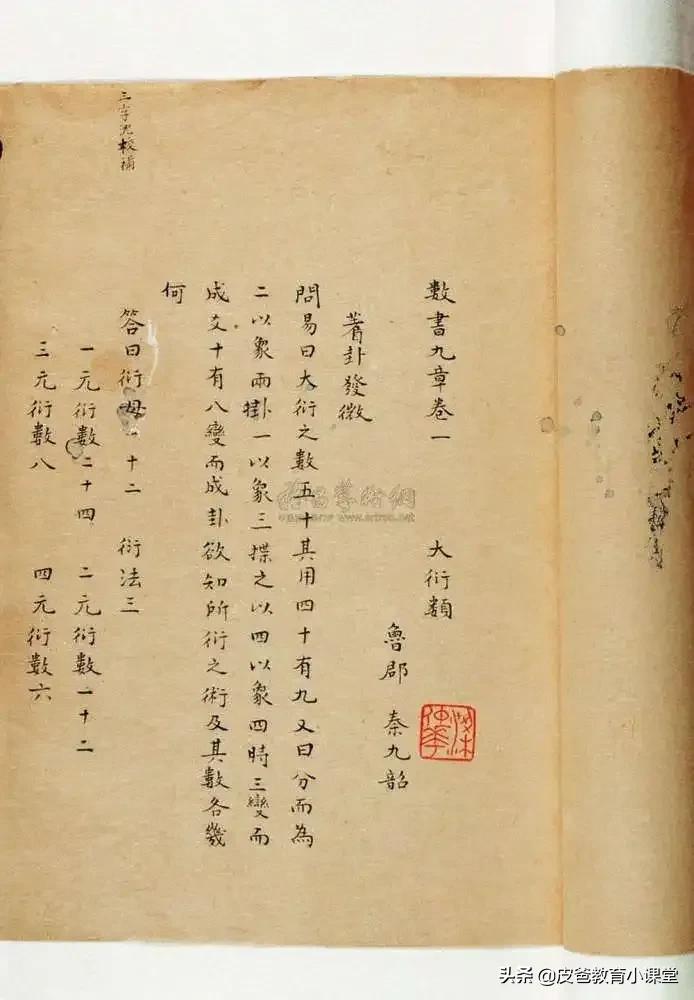 數書九章卷一 大衍類
魯郡 秦九韶
蓍卦發微
問易曰大衍之數五十其用四十有九又曰分而為
二以象兩掛一以象三揲之以四以象四時三變而
成爻十有八變而成卦欲知所衍之術及其數各幾
何
答曰衍母一十二 衍法三
一元衍數二十四 二元衍數一十二
三元衍數八 四元衍數六
三字沈校補
頭条 @皮爸教育小课堂